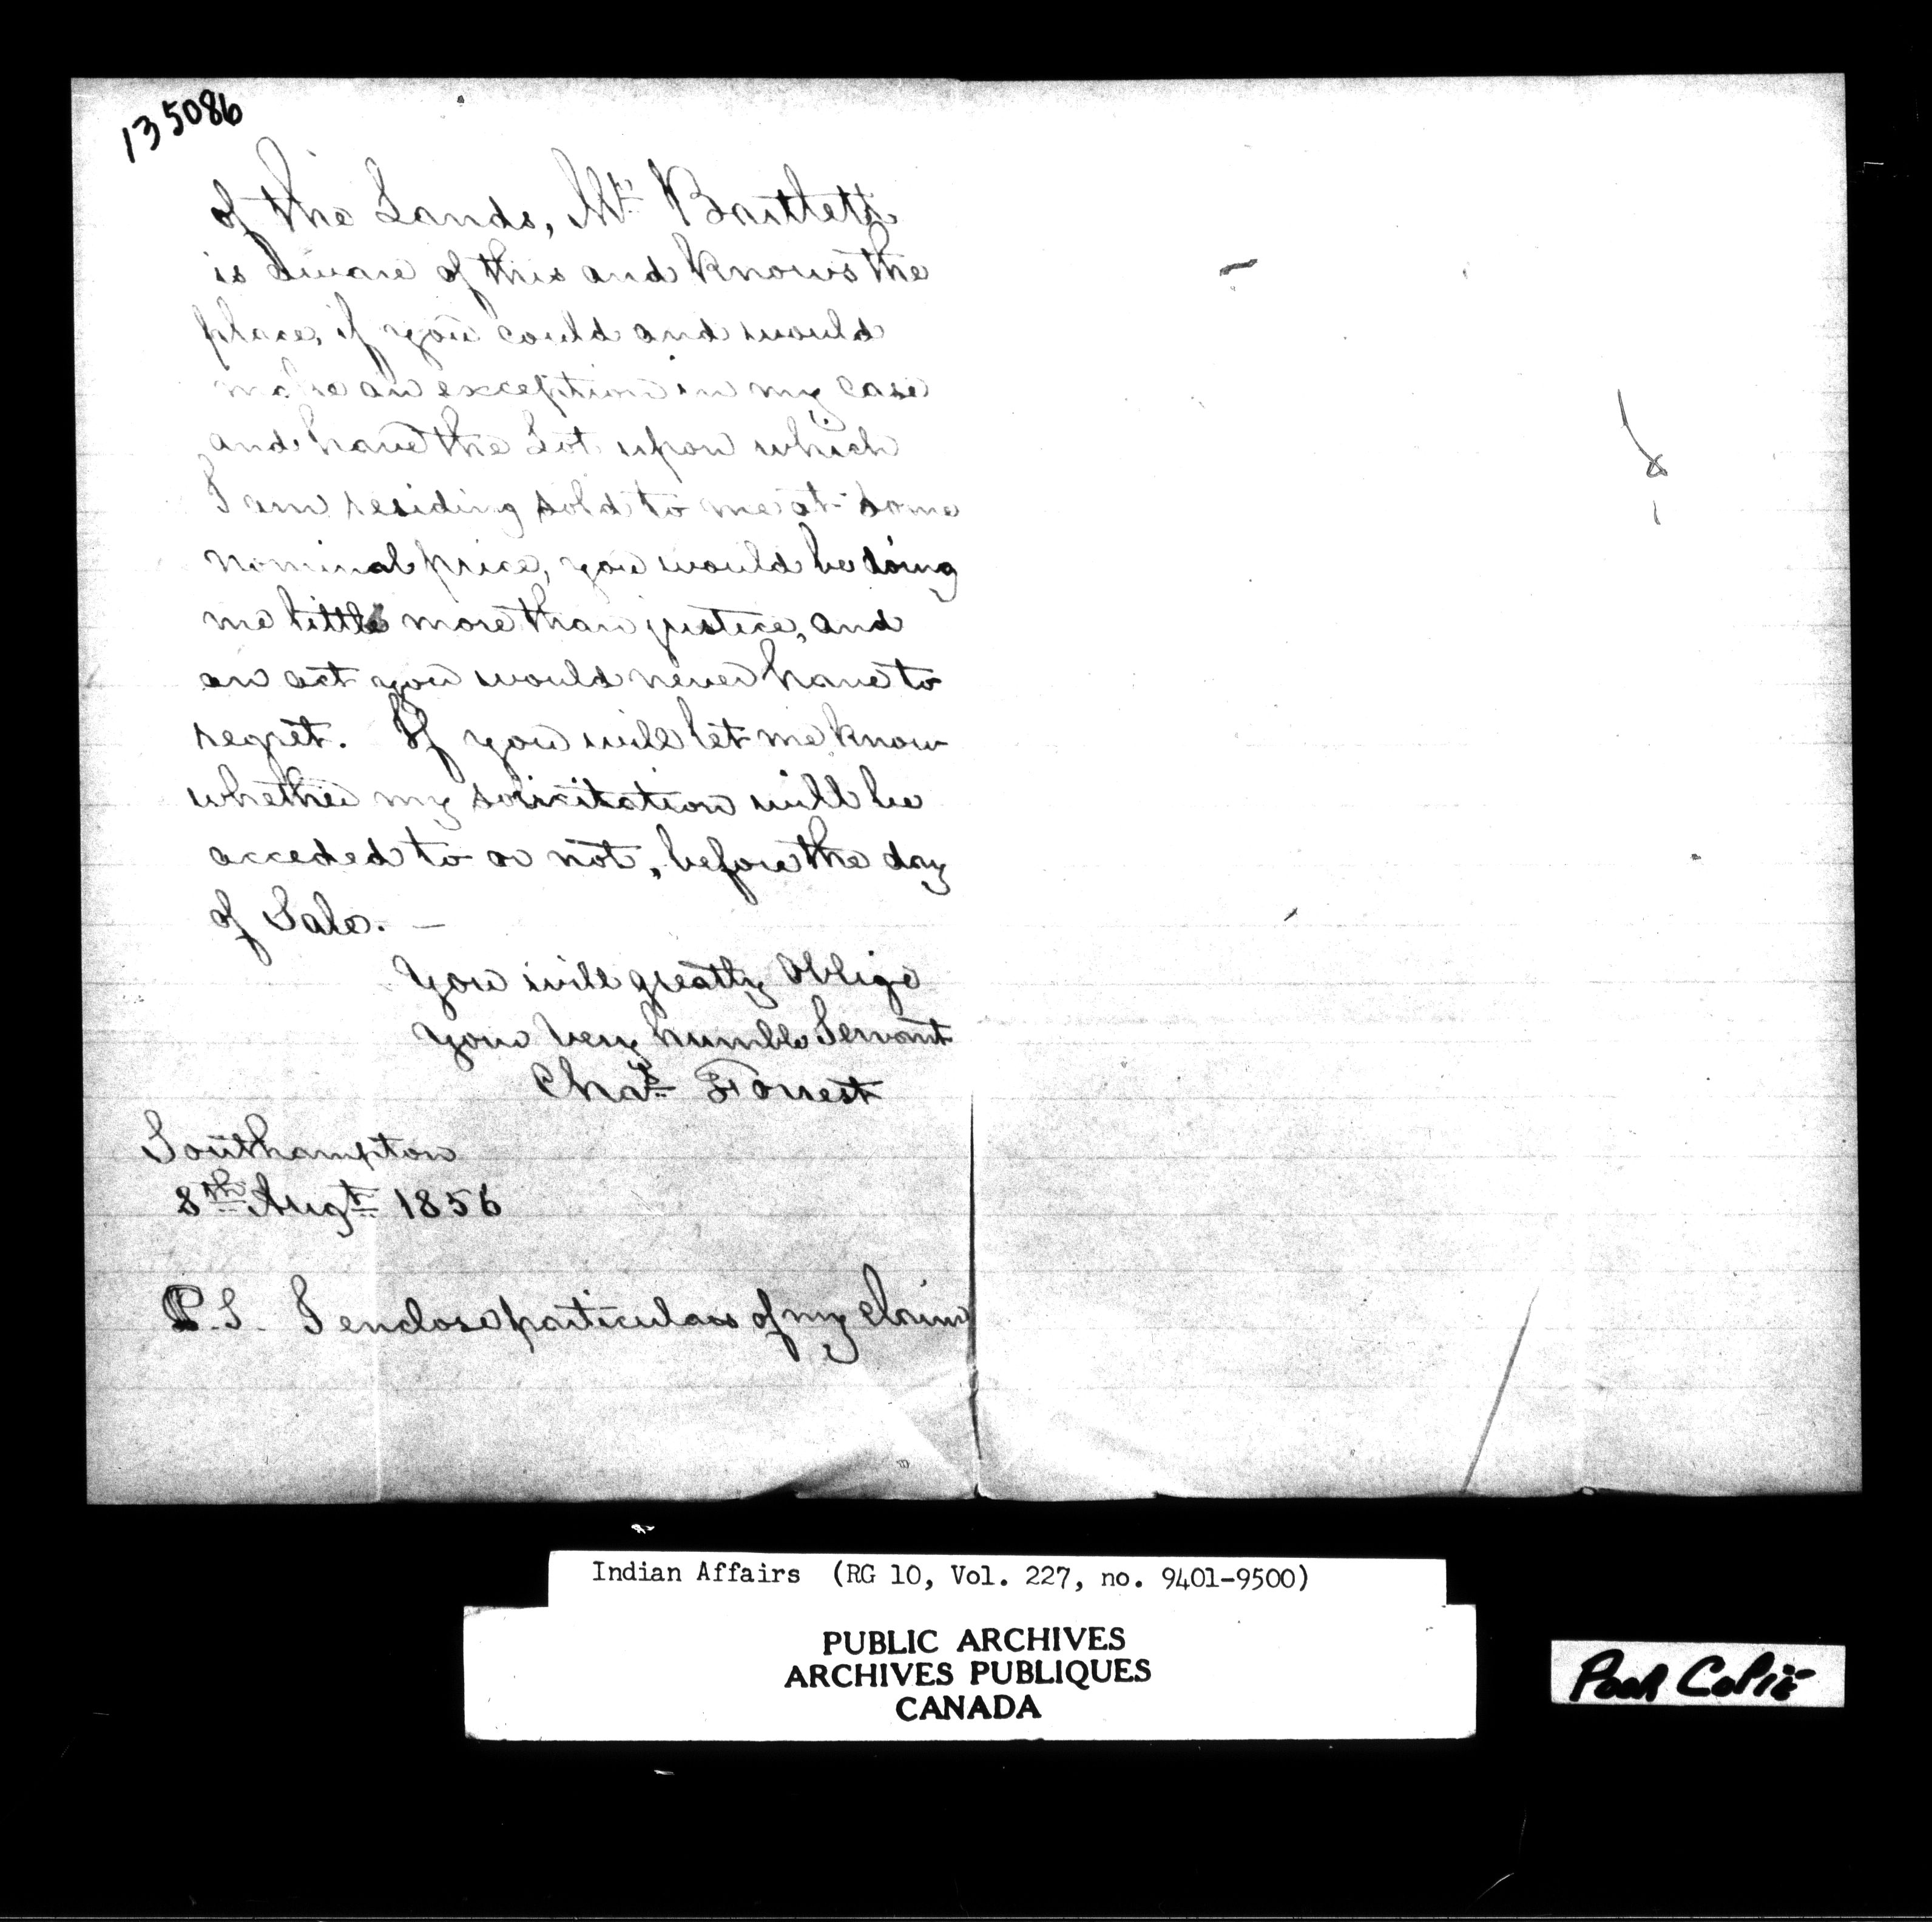 135086
of the Lands, Mr Bartlett
is aware of this and knows the
place, if you could and would
make an exception in my case
and have the Lot upon which
I am residing sold to me at some
nominal price, you would be doing
me little more than justice, and
an act you would never have to
regret. If you will let me know
whether my solicitation will be
acceded to or not, before the day
of Sale. —
You will greatly Oblige
your very humble Servant
Chas Forrest
Southampton
8th Augt 1856
P.S. I enclose particulars of my claim
Indian Affairs (RG 10, Vol. 227, no. 9401-9500)
PUBLIC ARCHIVES
ARCHIVES PUBLIQUES
CANADA
Poor